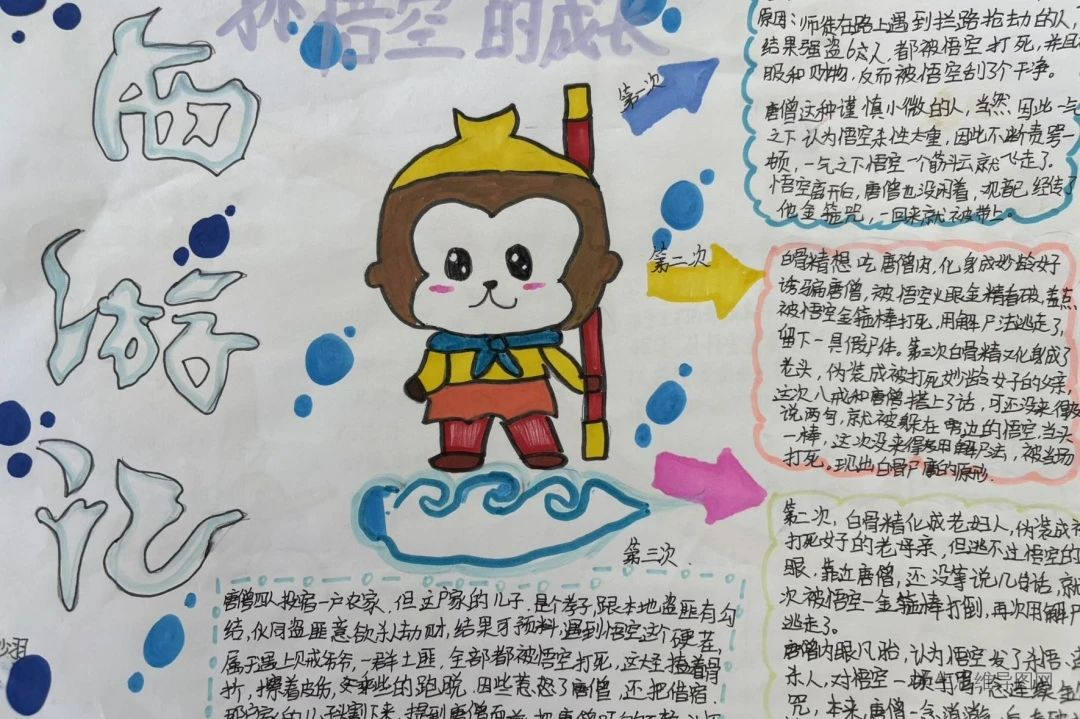 孙悟空的成长
西
游
记
第一次
原因：师徒在路上遇到拦路抢劫的人，
结果强盗6人，都被悟空打死，并且
服和财物，反而被悟空刮了个干净。
唐僧这种谨慎小微的人，当然因此一气
之下认为悟空杀性太重，因此不断责骂一
顿，一气之下悟空一个筋斗云就飞走了。
悟空离开后，唐僧也没闲着，观音已经传了
他金箍咒，一回来就被带上。
第二次
白骨精想吃唐僧肉，化身成妙龄好
诱骗唐僧，被悟空火眼金精看破，
被悟空金箍棒打死，用解尸法逃走了，
留下一具假尸体。第三次白骨精又化身成了
老头，伪装成被打死妙龄女子的父亲，
这次八戒和唐僧搭上了话，可还没来得及
说两句，就被躲在旁边的悟空当头
一棒，这次没来得及用解尸法，被当场
打死。现出白骨尸魔的原形.
第二次，白骨精化成老妇人，伪装成被
打死女子的老母亲，但逃不过悟空的
眼.靠近唐僧，还没等说几句话，就
次被悟空一金箍棒打倒，再次用解尸
逃走了。
唐僧肉眼凡胎，认为悟空发了杀悟
杀人，对悟空一顿
咒，本来唐僧一
第三次.
唐僧四人投宿一户农家，但这户家的儿子，是个孝子，跟本地盗匪有勾
结，伙同盗匪意欲杀人劫财，结果可预料，遇到悟空这个硬茬，
属于遇上贼爷爷，一群土匪，全部都被悟空打死，
折，擦着皮伤，些的跑脱.因些惹怒了唐僧，还把借宿
那户家的儿子割下来，提到唐僧面前